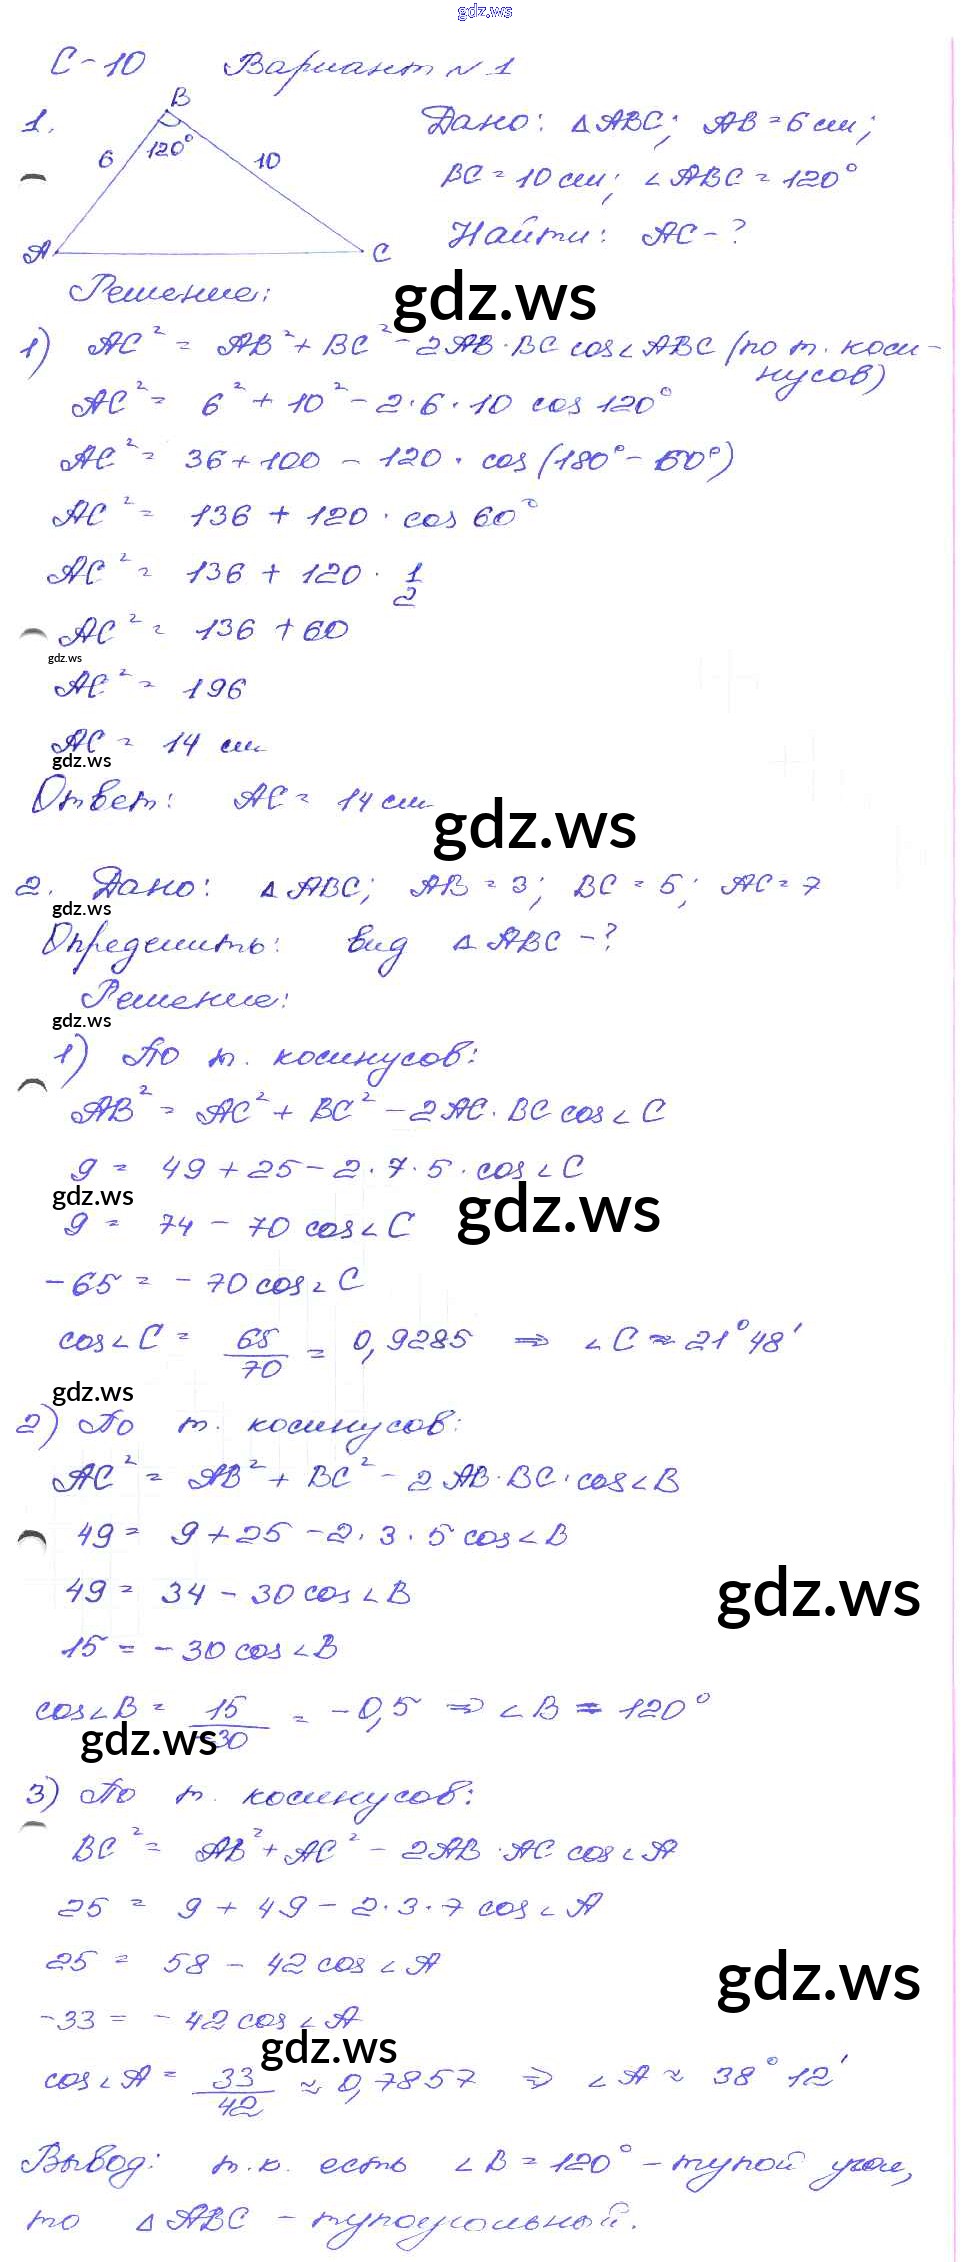 gdz.ws
С-10 Вариант №1
1.
B
6 120° 10
A C
Дано: △ABC; AB = 6 см;
BC = 10 см; ∠ABC = 120°
Найти: AC - ?
Решение:
gdz.ws
1) AC² = AB² + BC² - 2AB · BC cos∠ABC (по т. коси-
нусов)
AC² = 6² + 10² - 2 · 6 · 10 cos 120°
AC² = 36 + 100 - 120 · cos (180° - 60°)
AC² = 136 + 120 · cos 60°
AC² = 136 + 120 · 1/2
AC² = 136 + 60
gdz.ws
AC² = 196
AC = 14 см
gdz.ws
Ответ: AC = 14 см
gdz.ws
2. Дано: △ABC; AB = 3; BC = 5; AC = 7
gdz.ws
Определить: вид △ABC - ?
Решение:
gdz.ws
1) По т. косинусов:
AB² = AC² + BC² - 2AC · BC cos∠C
9 = 49 + 25 - 2 · 7 · 5 · cos∠C
gdz.ws
gdz.ws
9 = 74 - 70 cos∠C
-65 = -70 cos∠C
cos∠C = 65/70 = 0,9285 ⇒ ∠C ≈ 21°48'
gdz.ws
2) По т. косинусов:
AC² = AB² + BC² - 2AB · BC · cos∠B
49 = 9 + 25 - 2 · 3 · 5 cos∠B
49 = 34 - 30 cos∠B
gdz.ws
15 = -30 cos∠B
cos∠B = 15/-30 = -0,5 ⇒ ∠B = 120°
gdz.ws
3) По т. косинусов:
BC² = AB² + AC² - 2AB · AC cos∠A
25 = 9 + 49 - 2 · 3 · 7 cos∠A
25 = 58 - 42 cos∠A
gdz.ws
-33 = -42 cos∠A
gdz.ws
cos∠A = 33/42 ≈ 0,7857 ⇒ ∠A ≈ 38°12'
Вывод: т.к. есть ∠B = 120° - тупой угол,
то △ABC - тупоугольный.